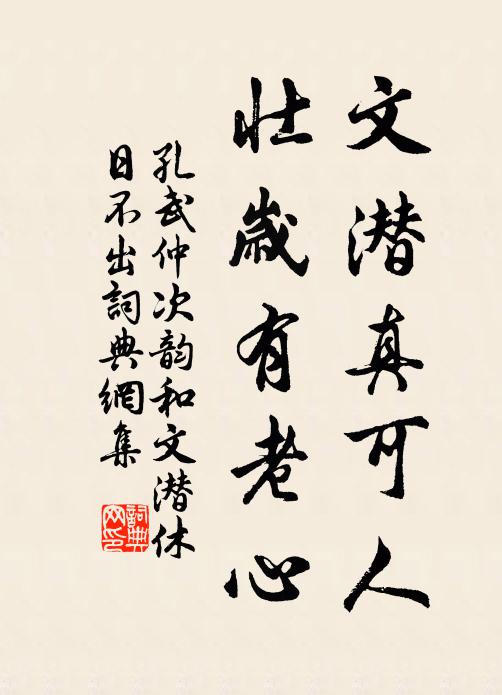 文潜真可人
壮歲有老心
孔武仲次韵和文潜休
日不出詞典網集
詞典
网印